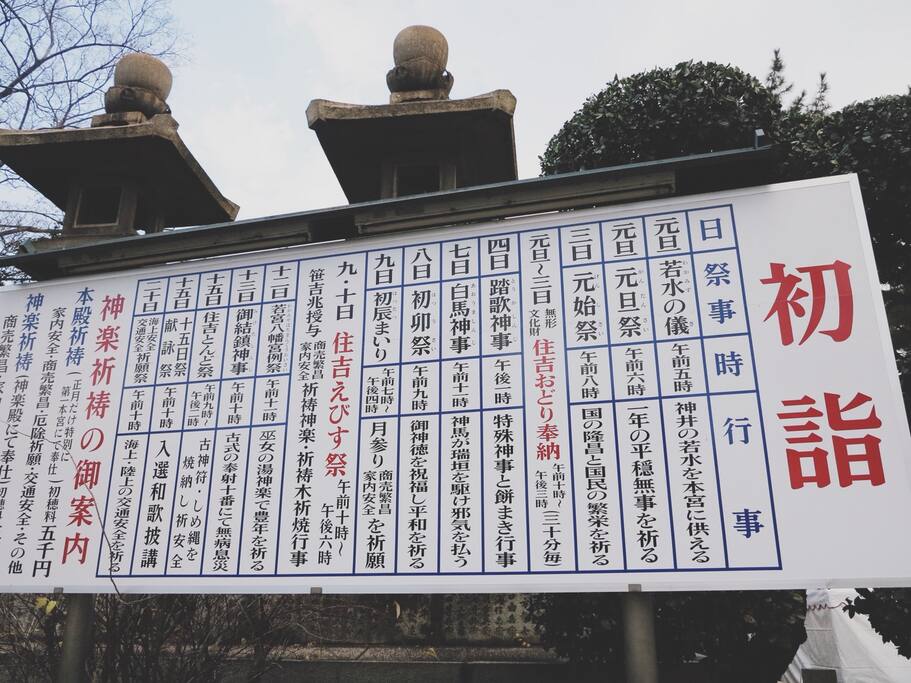 初詣
日 祭事 時 行事
元旦 若水の儀 午前五時 神井の若水を本宮に供える
元旦 元旦祭 午前六時 一年の平穏無事を祈る
三日 元始祭 午前八時 国の隆昌と国民の繁栄を祈る
元旦~三日 無形文化財 住吉おどり奉納 午前十時~午後三時 (三十分毎)
四日 踏歌神事 午後一時 特殊神事と餅まき行事
七日 白馬神事 午前十一時 神馬が瑞垣を駆け邪気を払う
八日 初卯祭 午前九時 御神徳を祝福し平和を祈る
九日 初辰まいり 午前七時~午後四時 月参り 商売繁昌家内安全 を祈願
九・十日 住吉えびす祭 午前十時~午後六時
笹吉兆授与 商売繁昌家内安全 祈祷神楽・祈祷木祈焼行事
十二日 若宮八幡宮例祭 午前十一時 巫女の湯神楽で豊年を祈る
十三日 御結鎮神事 午前十時 古式の奉射十番にて無病息災
十五日 住吉とんど祭 午前九時~午後二時 古神符・しめ縄を焼納し祈安全
十五日 十五日祭献詠祭 午前十時 入選和歌披講
二十日 海上安全交通安全 祈願祭 午前十時 海上・陸上の交通安全を祈る
神楽祈祷の御案内
本殿祈祷 (正月だけ特別に第一本宮にて奉仕) 初穂料 五千円
家内安全・商売繁昌・厄除祈願・交通安全・その他
神楽祈祷 神楽殿にて奉仕 初穂
商売繁昌